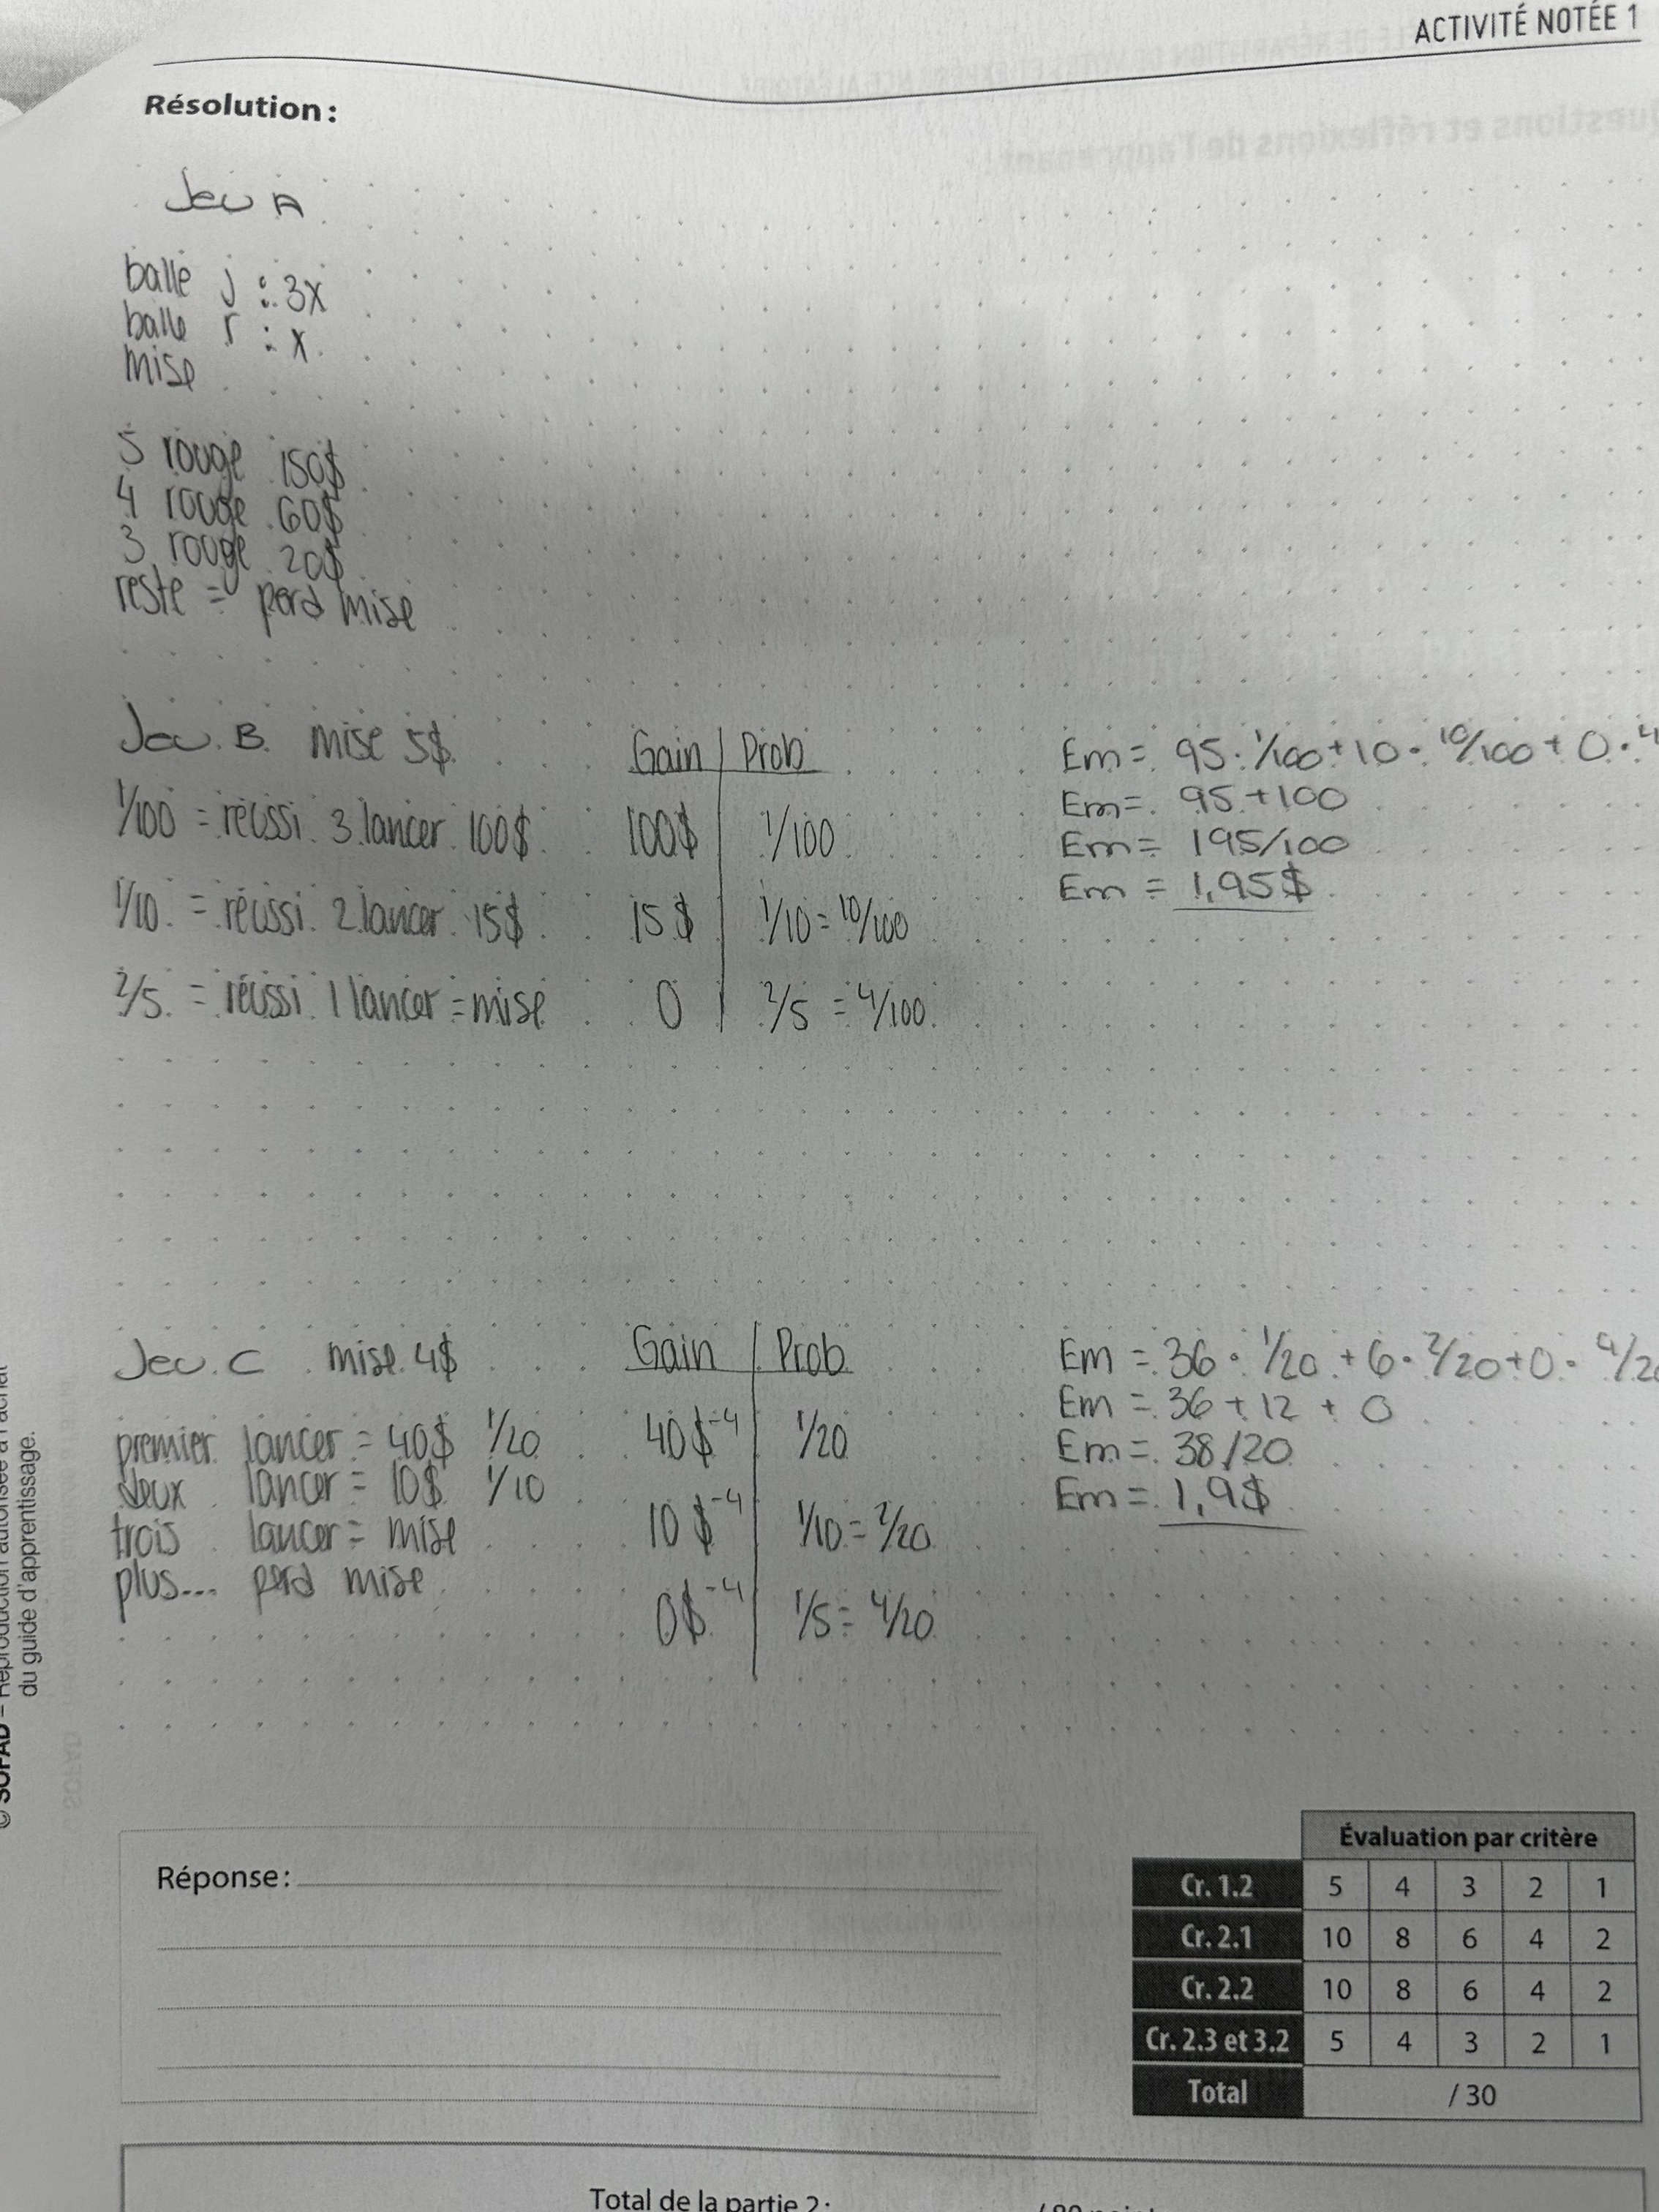 ACTIVITÉ NOTÉE 1
Résolution :
Jeu A
balle j : 3x
balle r : x
mise
5 rouge 150$
4 rouge 60$
3 rouge 20$
reste = perd mise
Jeu B mise 5$
1/100 = réussi 3 lancer 100$
1/10 = réussi 2 lancer 15$
2/5 = réussi 1 lancer = mise
Gain | Prob
100$ | 1/100
15$ | 1/10 = 10/100
0 | 2/5 = 4/100
Em = 95 · 1/100 + 10 · 10/100 + 0 · 4
Em = 95 + 100
Em = 195/100
Em = 1,95$
Jeu C mise 4$
premier lancer = 40$ 1/20
deux lancer = 10$ 1/10
trois lancer = mise
plus... perd mise
Gain | Prob
40$-4 | 1/20
10$-4 | 1/10 = 2/20
0$-4 | 1/5 = 4/20
Em = 36 · 1/20 + 6 · 2/20 + 0 · 4/20
Em = 36 + 12 + 0
Em = 38/20
Em = 1,9$
© SOFAD – Reproduction autorisée à l'achat
du guide d'apprentissage.
Réponse :
Évaluation par critère
Cr. 1.2 5 4 3 2 1
Cr. 2.1 10 8 6 4 2
Cr. 2.2 10 8 6 4 2
Cr. 2.3 et 3.2 5 4 3 2 1
Total / 30
Total de la partie 2 :